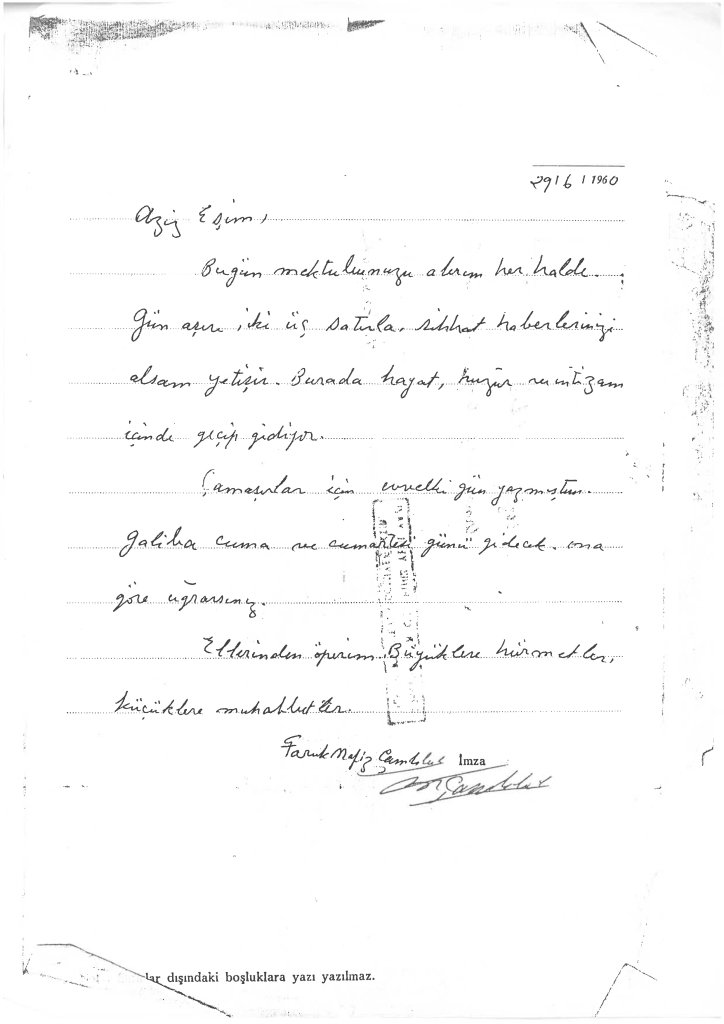 29/6/1960
Aziz Eşim,
Bugün mektubunuzu alırım her halde.
Gün aşırı iki üç satırla, sıhhat haberlerinizi
alsam yetişir. Burada hayat, huzûr ve intizam
içinde geçip gidiyor.
Çamaşırlar için evvelki gün yazmıştım.
Galiba cuma ve cumartesi günü gidecek. ona
göre uğrarsınız.
Ellerinden öperim. Büyüklere hürmetler,
küçüklere muhabbetler.
Faruk Nafiz Çamlıbel İmza
Çamlıbel
lar dışındaki boşluklara yazı yazılmaz.